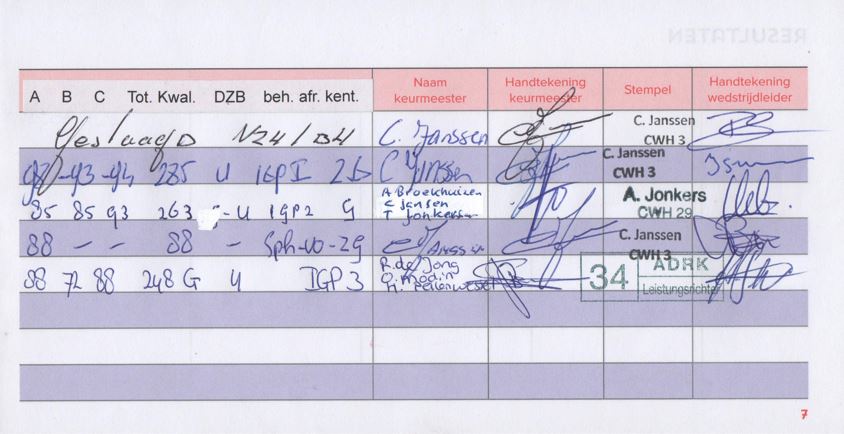 RESULTATEN
A B C Tot. Kwal. DZB beh. afr. kent. Naam keurmeester Handtekening keurmeester Stempel Handtekening wedstrijdleider
Geslaagd C. Janssen C. Janssen CWH 3
98 - 93 - 94 285 U IGP I C Janssen C. Janssen CWH 3
85 85 93 263 - U IGP2 G A Broekhuizen C Jansen T Jonkers A. Jonkers CWH 29
88 - - 88 - Sph-VO-ZG C. Janssen CWH 3
88 72 88 248 G U IGP 3 R. de Jong 34 ADRK Leistungsrichter
7